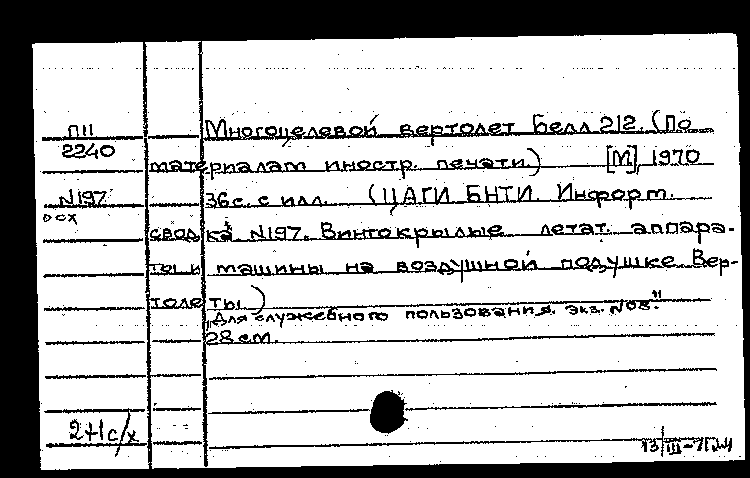 П11
2240
Многоцелевой вертолет Белл 212. (По
материалам иностр. печати.) [М], 1970
N197 36 с. с илл. (ЦАГИ. БНТИ. Информ.
осх
сводка N197. Винтокрылые летат. аппара-
ты и машины на воздушной подушке Вер-
толеты)
"Для служебного пользования. Экз. N08."
28 см.
2+1 с/х